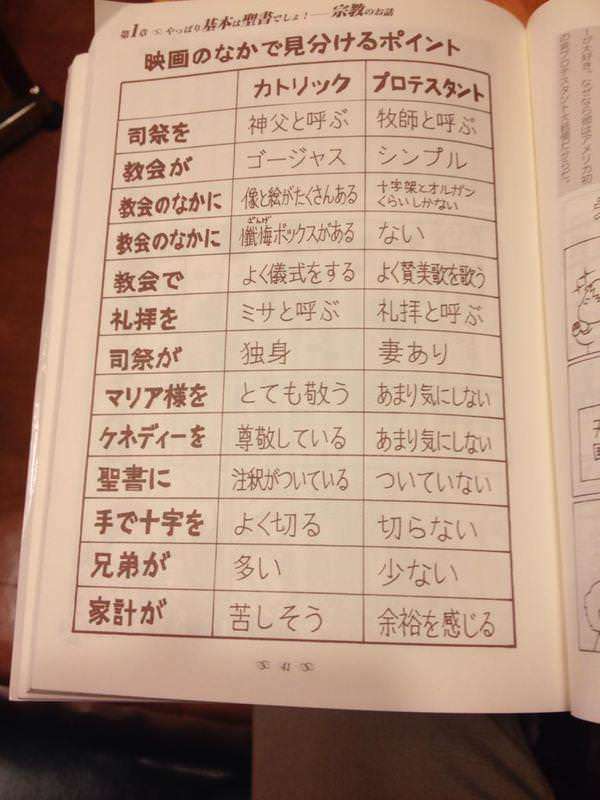 第1章 やっぱり基本は聖書でしょ!——宗教のお話
映画のなかで見分けるポイント
カトリック プロテスタント
司祭を 神父と呼ぶ 牧師と呼ぶ
教会が ゴージャス シンプル
教会のなかに 像と絵がたくさんある 十字架とオルガン
くらいしかない
教会のなかに 懺悔ボックスがある ない
ざんげ
教会で よく儀式をする よく賛美歌を歌う
礼拝を ミサと呼ぶ 礼拝と呼ぶ
司祭が 独身 妻あり
マリア様を とても敬う あまり気にしない
ケネディーを 尊敬している あまり気にしない
聖書に 注釈がついている ついていない
手で十字を よく切る 切らない
兄弟が 多い 少ない
家計が 苦しそう 余裕を感じる
41